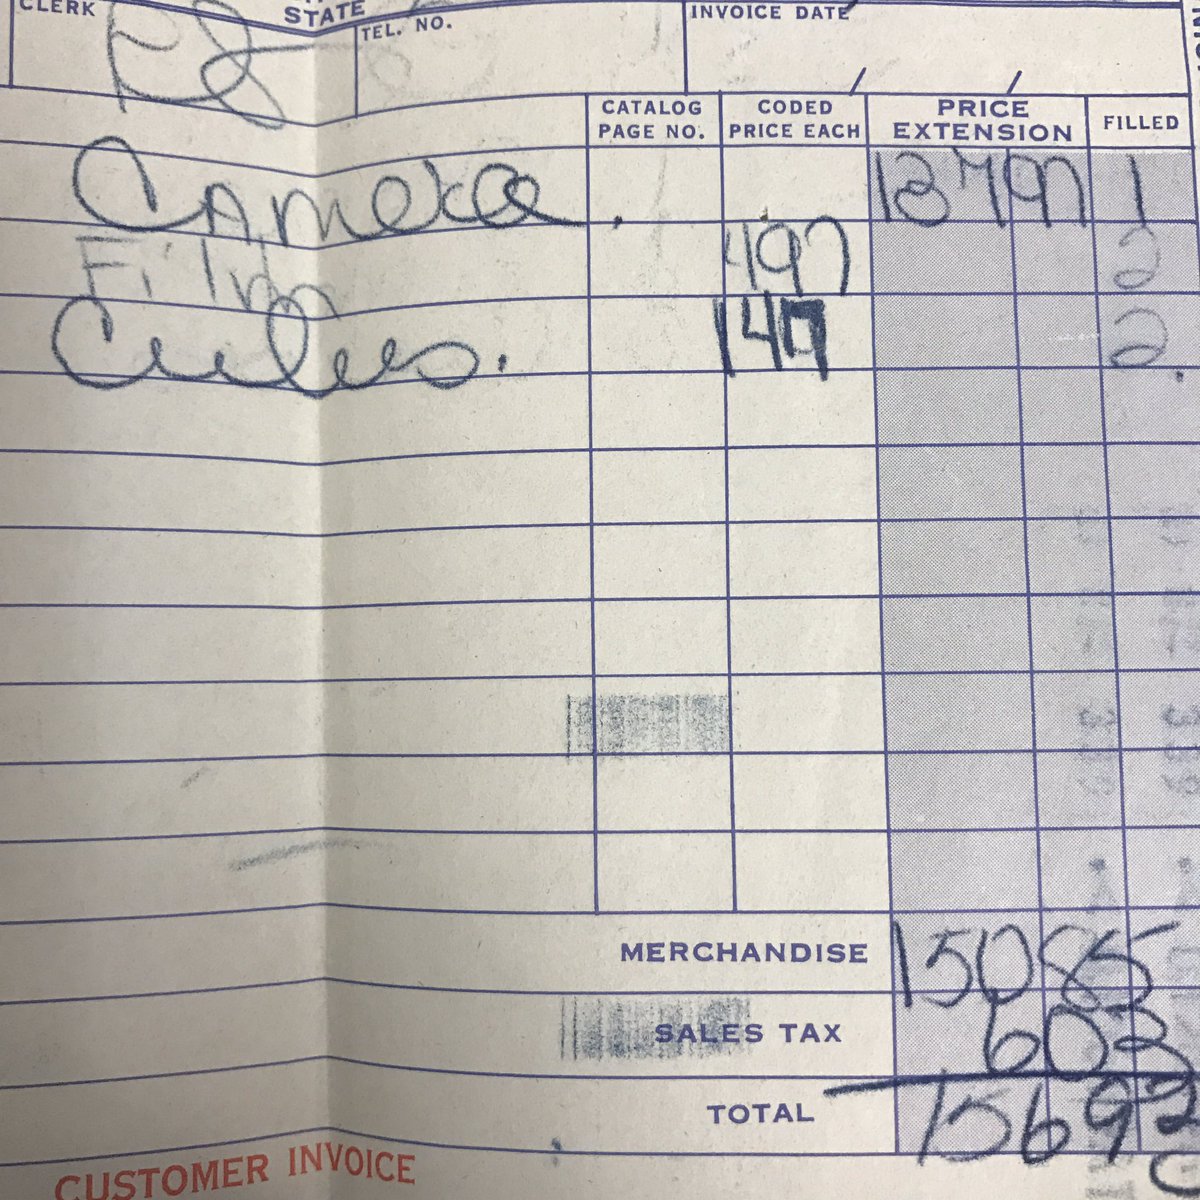 CLERK STATE TEL. NO. INVOICE DATE
CATALOG PAGE NO. CODED PRICE EACH PRICE EXTENSION FILLED
Camera. 137 97 1
Film 497 2
Cubes. 147 2
MERCHANDISE 150 85
SALES TAX 6 03
TOTAL 156 92
CUSTOMER INVOICE